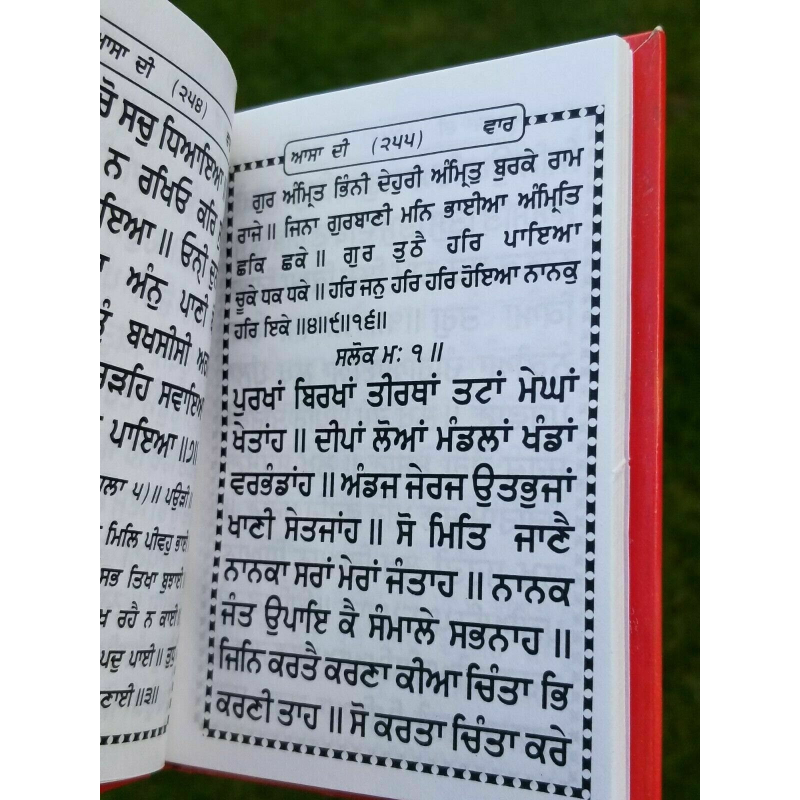 ਆਸਾ ਦੀ (੨੫੪)
ਸਚੁ ਧਿਆਇਆ
ਨ ਰਖਿਓ ਕਰਿ
॥ ਓਨੀ
ਅੰਨੁ ਪਾਣੀ
ਬਖਸੀਸੀ
ਸਵਾਇਆ
ਪਾਇਆ ॥੭॥
੫)॥ ਪਉੜੀ॥
ਮਿਲਿ ਪੀਵਹੁ ਭਾਈ
ਸਭ ਤਿਖਾ ਬੁਝਾਈ॥
ਰਹੈ ਨ ਕਾਈ॥
ਪਦੁ ਪਾਈ॥
॥੩॥
ਆਸਾ ਦੀ (੨੫੫) ਵਾਰ
ਗੁਰ ਅੰਮ੍ਰਿਤ ਭਿੰਨੀ ਦੇਹੁਰੀ ਅੰਮ੍ਰਿਤੁ ਬੁਰਕੇ ਰਾਮ
ਰਾਜੇ॥ ਜਿਨਾ ਗੁਰਬਾਣੀ ਮਨਿ ਭਾਈਆ ਅੰਮ੍ਰਿਤਿ
ਛਕਿ ਛਕੇ॥ ਗੁਰ ਤੁਠੈ ਹਰਿ ਪਾਇਆ
ਚੂਕੇ ਧਕ ਧਕੇ॥ ਹਰਿ ਜਨੁ ਹਰਿ ਹਰਿ ਹੋਇਆ ਨਾਨਕੁ
ਹਰਿ ਇਕੇ ॥੪॥੯॥੧੬॥
ਸਲੋਕ ਮਃ ੧ ॥
ਪੁਰਖਾਂ ਬਿਰਖਾਂ ਤੀਰਥਾਂ ਤਟਾਂ ਮੇਘਾਂ
ਖੇਤਾਂਹ॥ ਦੀਪਾਂ ਲੋਆਂ ਮੰਡਲਾਂ ਖੰਡਾਂ
ਵਰਭੰਡਾਂਹ॥ ਅੰਡਜ ਜੇਰਜ ਉਤਭੁਜਾਂ
ਖਾਣੀ ਸੇਤਜਾਂਹ॥ ਸੋ ਮਿਤਿ ਜਾਣੈ
ਨਾਨਕਾ ਸਰਾਂ ਮੇਰਾਂ ਜੰਤਾਹ॥ ਨਾਨਕ
ਜੰਤ ਉਪਾਇ ਕੈ ਸੰਮਾਲੇ ਸਭਨਾਹ॥
ਜਿਨਿ ਕਰਤੈ ਕਰਣਾ ਕੀਆ ਚਿੰਤਾ ਭਿ
ਕਰਣੀ ਤਾਹ॥ ਸੋ ਕਰਤਾ ਚਿੰਤਾ ਕਰੇ